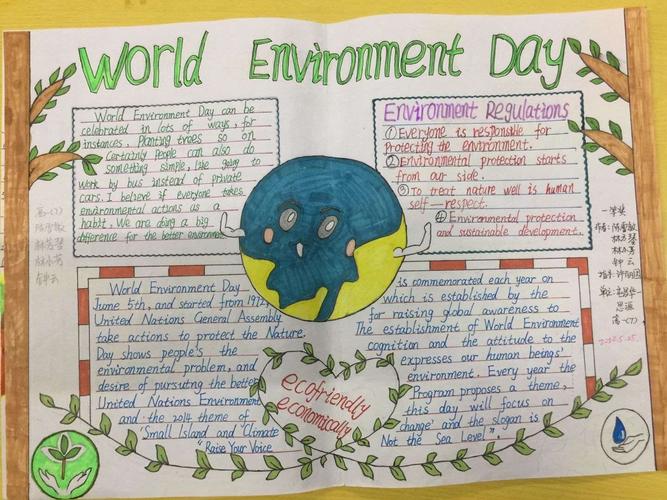 World Environment Day
World Environment Day can be
celebrated in lots of ways, for
instances, Planting trees so on
Certainly people can also do
something simple, like going to
work by bus instead of private
cars. I believe if everyone takes
environmental actions as a
habit. We are doing a big
difference for the better environment
Environment Regulations
①Everyone is responsible for
Protecting the environment.
②Environmental protection starts
from our side.
③To treat nature well is human
self-respect.
④Environmental protection
and sustainable development.
World Environment Day is commemorated each year on
June 5th, and started from 1972, which is established by the
United Nations General Assembly for raising global awareness to
take actions to protect the Nature. The establishment of World Environment
Day shows people's the cognition and the attitude to the
environmental problem, and expresses our human beings'
desire of pursuing the better environment. Every year the
United Nations Environment Program proposes a theme,
and the 2014 theme of this day will focus on
'Small Island and Climate change' and the slogan is
"Raise Your Voice Not the Sea Level".
ecofriendly
economically
高一(7)
一等奖
高一(7)